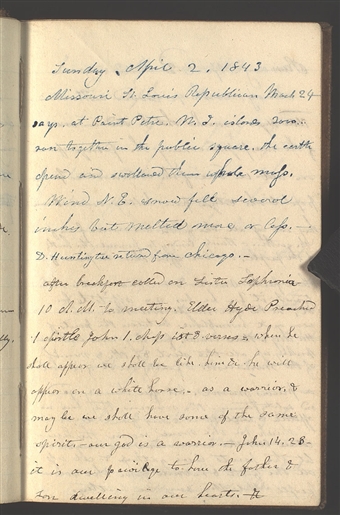 Sunday April 2. 1843
Missouri St. Louis Republican March 24
says. at Point Petre. W. I. islands 2000.
ran together in the public square. the earth
opend and swollowed them whole mass.
Wind N. E. snow fell several
inches but melted more or less. —
D. Huntington return from Chicago. —
after breakfast called on Sister Sophronia
10 A.M. to meeting. Elder Hyde Preached
1 epistle John 1. chap 1st 3 verses. when he
shall appear we shall be like him &c he will
appear on a white horse. — as a warrior. &
may be we shall have some of the same
spirit. — our god is a warrior. — John 14. 23 —
it is our privilege to have the father &
son dwelling in our hearts. —